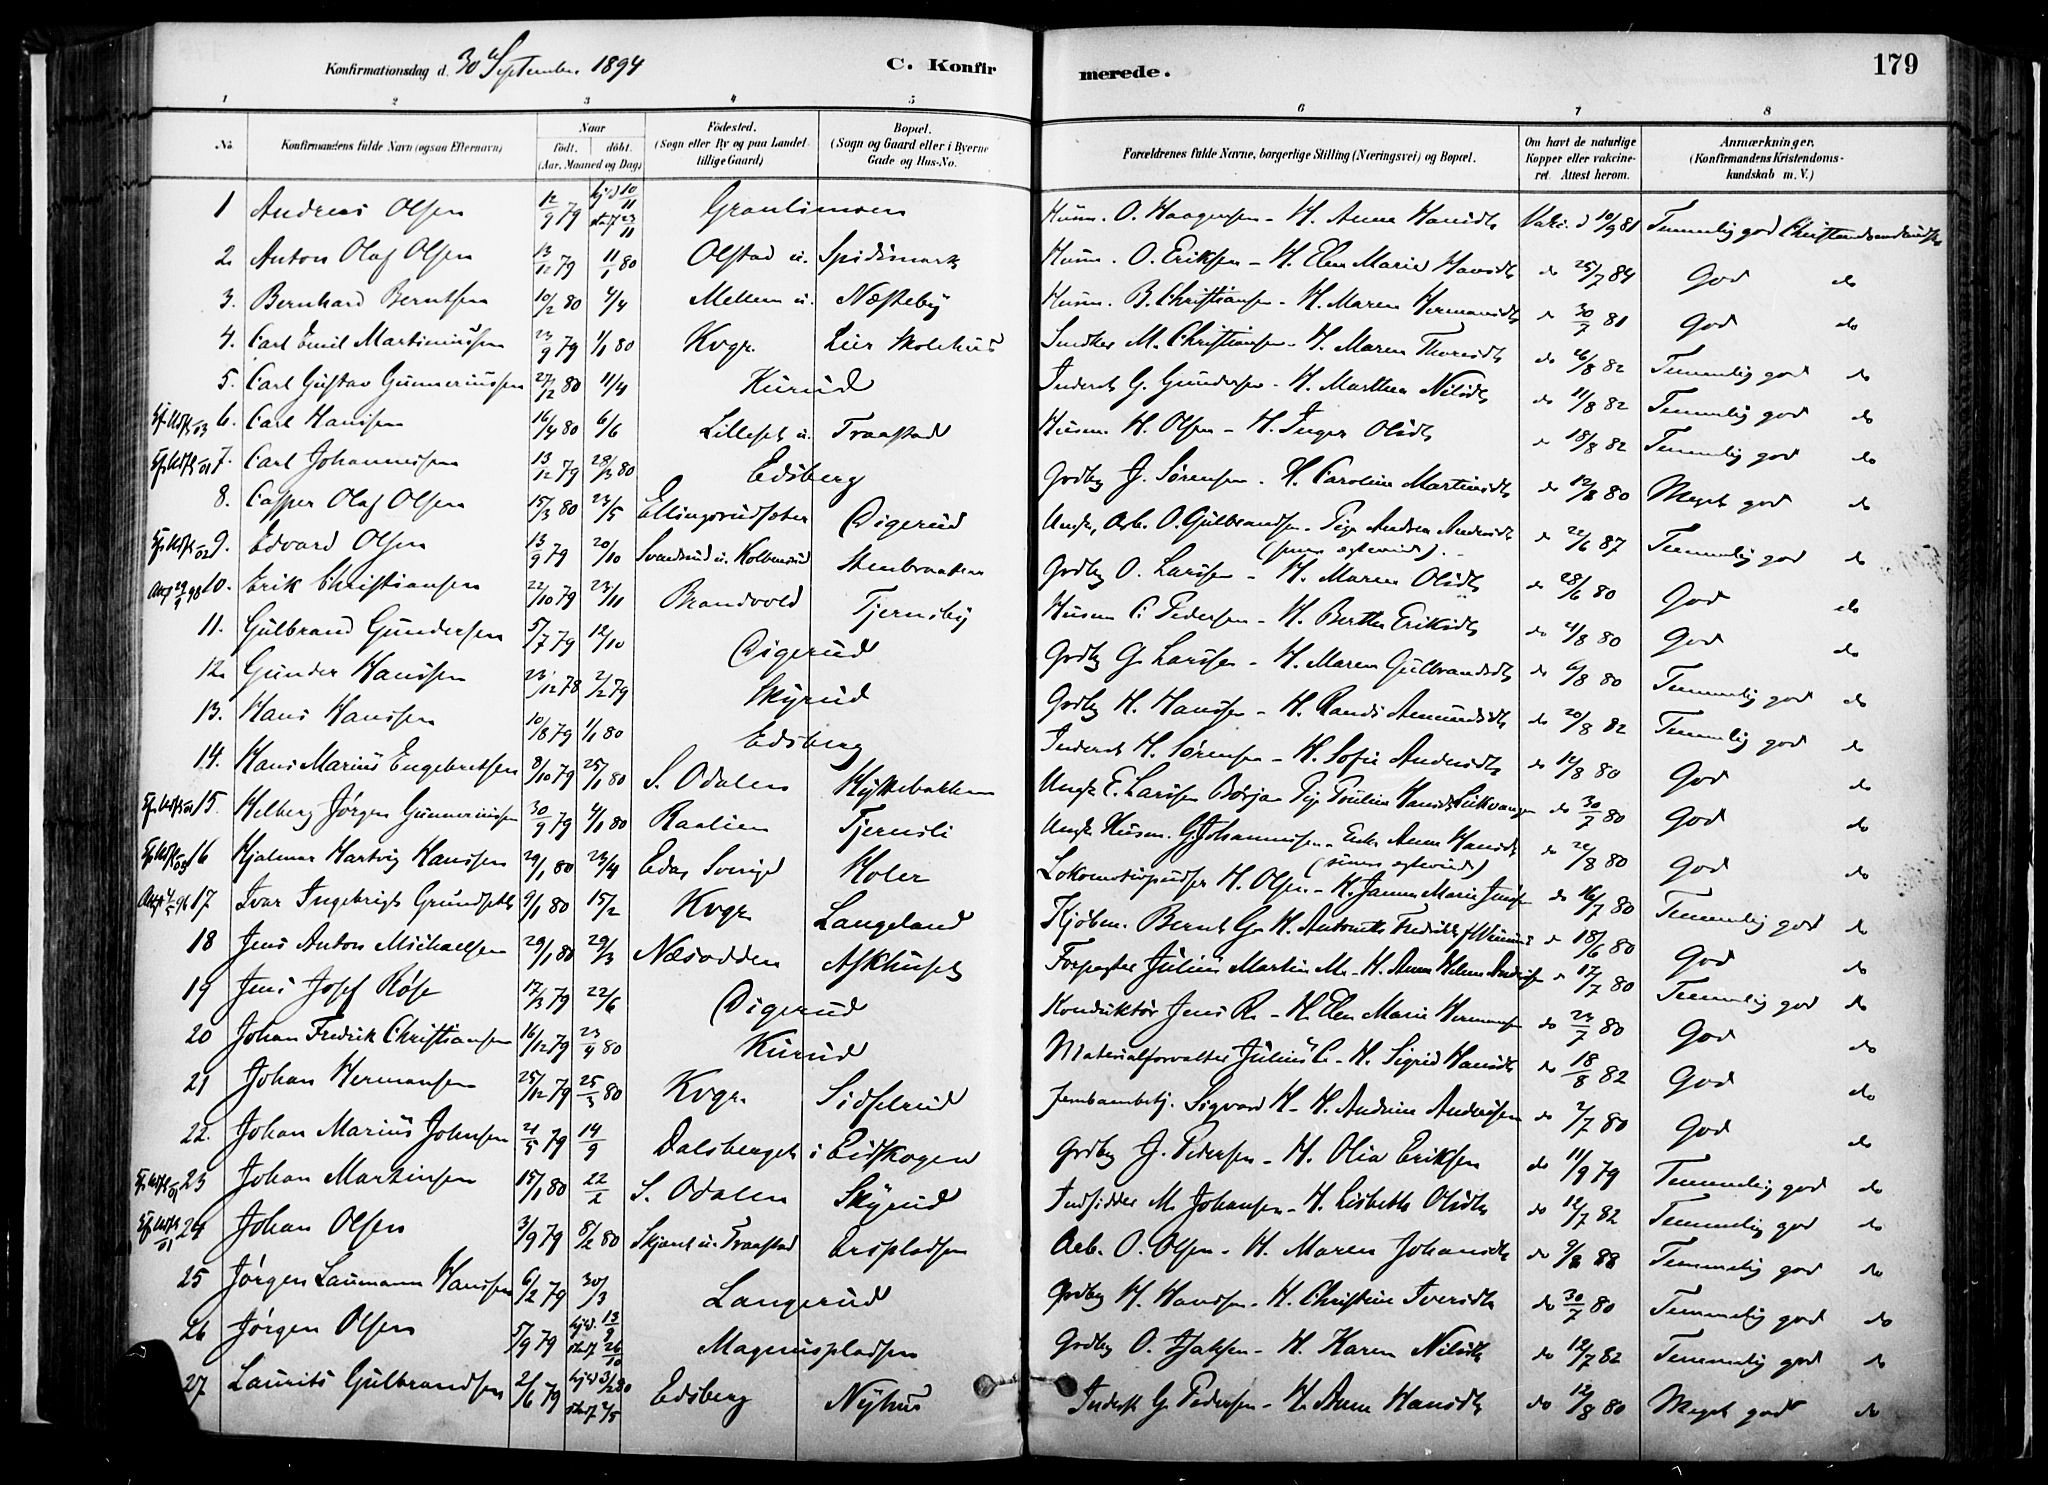 Konfirmationsdag d. 30 September 1894 C. Konfirmerede. 179
1 2 3 4 5 6 7 8
No. Konfirmandens fulde Navn (ogsaa Efternavn) Naar født. døbt. (Aar, Maaned og Dag) Fødested. (Sogn eller By og paa Landet tillige Gaard) Bopæl. (Sogn og Gaard eller i Byerne Gade og Hus-No. Forældrenes fulde Navne, borgerlige Stilling (Næringsvei) og Bopæl. Om havt de naturlige Kopper eller vakcineret. Attest herom. Anmærkninger. (Konfirmandens Kristendomskundskab m. V.)
1 Andreas Olsen 12/9 79 hjd 10/11 stadf 23/11 Granlimoen Husm. O. Haagensen - H. Anne Hansdt Vakc. d 10/9 81 Temmelig god Christendomskundskab
2 Anton Olaf Olsen 13/12 79 11/1 80 Olstad u. Spidsmark Husm. O. Eriksen - H. Elen Marie Hansdt do 25/7 84 God do
3. Bernhard Berntsen 10/2 80 4/4 Mellem u. Næsteby Husm. B. Christiansen - H. Maren Hermansdt d 30/7 81 God do
4. Carl Emil Martiniussen 23/9 79 1/1 80 Kvgr. Lier Skolehus Snedker M. Christiansen - H. Maren Thoresdt do 26/8 82 Temmelig god do
5. Carl Gustav Gunneriussen 27/2 80 11/4 Kurud Inderst G. Gundersen - H. Marthea Nilsdt do 11/8 82 Temmelig god do
6. Carl Hansen 16/4 80 6/6 Lilleset u. Traastad Husm. H. Olsen - H. Inger Olsdt d 18/8 82 Temmelig god do
7. Carl Johannessen 13/12 79 28/3 80 Edsberg Grdbg J. Sørensen - H. Caroline Martinsdt do 12/8 80 Meget god do
8. Casper Olaf Olsen 15/3 80 23/5 Ellingsrudsæter Digerud Ungk, Arb. O. Gulbrandsen - Pige Andrea Andersdt do 22/6 87 Temmelig god do
9. Edvard Olsen 13/9 79 20/10 Svendsrud u. Kolbensrud Stenbraaten Grdbg O. Larsen - H. Maren Olsdt do 28/6 80 God do
10. Erik Christiansen 22/10 79 23/11 Brandvold Tjernsby Husm C. Pedersen - H. Berthe Eriksdt do 21/8 80 God do
11. Gulbrand Gundersen 5/7 79 12/10 Digerud Grdbg G. Larsen - H. Maren Gulbrandsdt do 6/8 80 Temmelig god do
12. Gunder Hansen 23/12 78 2/2 79 Skyrud Grdbg H. Hansen - H. Randi Amundsdt do 20/8 82 Temmelig god do
13. Hans Hansen 10/8 79 1/1 80 Edsberg Inderst H. Sørensen - H. Sofie Andersdt do 14/8 80 God do
14. Hans Marius Engebretsen 8/10 79 25/1 80 S. Odalen Hyttebakken Ungk E. Larsen Pige Pouline Hansdt do 30/7 80 God do
15. Helberg Jørgen Gunneriussen 30/9 79 4/1 80 Raalien Tjernsli Ungk. Husm. G. Johannessen - Enke Anne Hansdt do 22/8 80 God do
16 Hjalmar Hartvig Hansen 29/1 80 23/4 Eda Sverige Holer Lokomotivpudser H. Olsen - H. Janna Marie Jensen do 16/7 80 Temmelig god do
17 Ivar Ingebrigt Grundseth 9/1 80 15/2 Kvgr. Langeland Kjøbm. Bernt G - H. Antonette Fredrikke d 18/6 80 God do
18 Jens Anton Michaelsen 29/1 80 29/3 Næsodden Askhuset Forpagter Julius Martin M. - H. Anne Helene Andersen d 17/7 80 Temmelig god do
19 Jens Josef Røse 17/3 79 22/6 Digerud Konduktør Jens R. - H. Elen Marie Hermansen do 23/7 80 God do
20 Johan Fredrik Christiansen 16/12 79 23/4 80 Kurud Materialforvalter Julius C - H. Sigrid Hansdt do 18/8 82 God do
21 Johan Hermansen 25/12 79 25/3 80 Kvgr. Sidselrud Jernbanebetj. Sigvard H - H. Andrine Andersen do 2/7 80 God do
22. Johan Marius Johnsen 21/5 79 14/9 Dalsberget i Eidskogen Grdbg J. Pedersen - H. Olia Eriksen do 11/9 79 Temmelig god do
23 Johan Martinsen 15/1 80 22/2 S. Odalen Skyrud Indsidder M. Johansen - H. Lisbeth Olsdt do 12/7 82 Temmelig god do
24 Johan Olsen 3/9 79 8/2 80 Skjaret u. Traastad Erspladsen Arb. O. Olsen - H. Maren Johansdt do 9/8 88 Temmelig god do
25 Jørgen Laumann Hansen 6/2 79 30/3 Langerud Grdbg H. Hansen - H. Christine Iversdt do 30/7 80 Temmelig god do
26 Jørgen Olsen 5/9 79 hjd. 13/9 stadf 26/10 Magnuspladsen Grdbg O. Isaksen - H. Karen Nilsdt do 12/7 82 Temmelig god do
27 Laurits Gulbrandsen 21/6 79 hjd 3/2 80 stadf 2/5 Edsberg Nyhus Inderst G. Pedersen - H. Anne Hansdt do 12/8 80 Meget god do